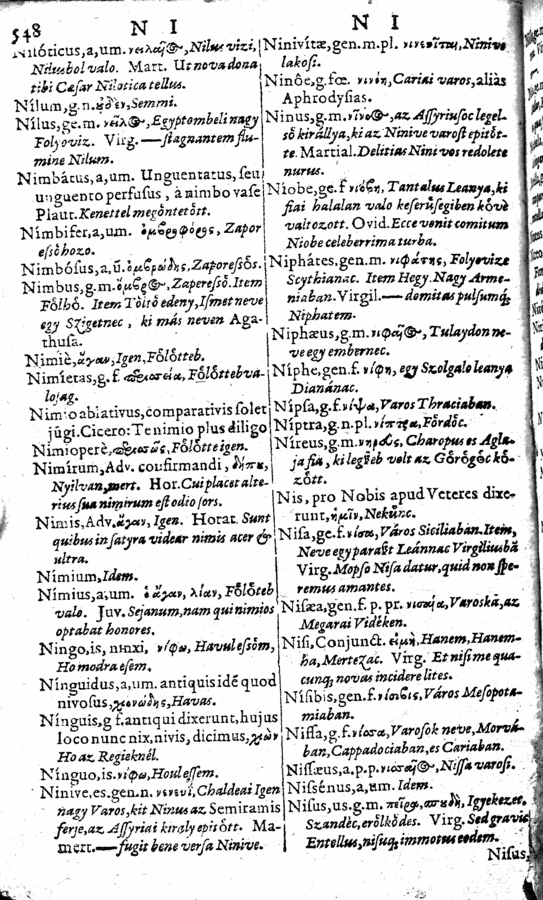 548 N I N I
Nilóticus,a,um. νειλαῖος, Nilus vizi,
Nilusbol valo. Mart. Ut nova dona
tibi Cæsar Nilotica tellus.
Nílum,g.n. Semmi.
Nílus,ge.m. νεῖλος, Egyptombeli nagy
Folyoviz. Virg. — stagnantem flu-
mine Nilum.
Nimbátus,a,um. Unguentatus, seu
unguento perfusus, à nimbo vase
Plaut. Kenettel megöntetött.
Nímbifer,a,um. ὀμβρηφόρος, Zapor
essöhozo.
Nimbósus,a,ũ. ὀμβρώδης, Zaporessös.
Nimbus,g.m. ὄμβρος, Zaperessö. Item
Fölhö. Item Töltö edeny, Ismet neve
egy Szigetnec, ki más neven Aga-
thusa.
Nimiè, ἄγαν, Igen, Fölötteb.
Nimíetas,g.f. Fölöttebva-
losag.
Nimio abiativus,comparativis solet
jũgi.Cicero: Te nimio plus diligo
Nimioperè, Fölötte igen.
Nimírum, Adv. confirmandi, δήπου,
Nyilvan, mert. Hor. Cui placet alte-
rius sua nimirum est odio sors.
Nimis, Adv. ἄγαν, Igen. Horat. Sunt
quibus in satyra videar nimis acer &
ultra.
Nímium, Idem.
Nímius,a,um. ὁ ἄγαν, λίαν, Fölötteb
valo. Juv. Sejanum, nam qui nimios
optabat honores.
Ningo,is, ninxi, νίφω, Havulessöm,
Ho modra esem.
Nínguidus,a,um. antiquis idẽ quod
nivosus, χιονώδης, Havas.
Nínguis,g f.antiqui dixerunt,hujus
loco nunc nix, nivis, dicimus, χιών
Ho az Regieknél.
Nínguo,is. νίφω, Houl essem.
Ninive,es.gen.n. νινευί, Chaldeai Igen
nagy Varos, kit Ninus az Semiramis
ferje, az Assyriai kiraly epitött. Ma-
mert. — fugit bene versa Ninive.
Ninivítæ,gen.m.pl. νινευῖται, Ninive
lakosi.
Ninôe,g.fœ. νινόη, Cariai varos, aliàs
Aphrodysias.
Ninus,g.m. νῖνος, az Assyriusoc legel-
sö királlya, ki az Ninive varost epitöt-
te. Martial. Delitias Nini vos redolete
nurus.
Níobe,ge.f νιόβη, Tantalus Leanya, ki
fiai halalan valo keserüsegiben kövè
valtozott. Ovid. Ecce venit comitum
Niobe celeberrima turba.
Niphátes,gen.m. νιφάτης, Folyovize
Scythianac. Item Hegy. Nagy Arme-
niaban. Virgil. — domitas pulsumq;
Niphatem.
Niphæus,g.m. νιφαῖος, Tulaydon ne-
ve egy embernec.
Níphe,gen.f. νίφη, egy Szolgalo leanya
Dianánac.
Nípsa,g.f. νίψα, Varos Thraciaban.
Níptra,g.n.pl. νίπτρα, Fördöc.
Níreus,g.m. νηρεὺς, Charopus es Agla-
ja fia, ki legszeb volt az Görögöc kö-
zött.
Nis, pro Nobis apud Veteres dixe-
runt, ἡμῖν, Nekünc.
Nisa,ge.f. νίσα, Város Siciliaban. Item,
Neve egy paraszt Leánnac Virgiliusbã
Virg. Mopso Nisa datur, quid non spe-
remus amantes.
Nisæa,gen.f. p. pr. νισαία, Varoskà, az
Megarai Vidéken.
Nisi, Conjunct. εἰμὴ, Hanem, Hanem-
ha, Mertezac. Virg. Et nisi me qua-
cunq; novas incidere lites.
Nísibis,gen.f. νίσιβις, Város Mesopota-
miaban.
Nissa,g.f. νίσσα, Varosok neve, Morvá-
ban, Cappadociaban, es Cariaban.
Nissæus,a,p.p. νισσαῖος, Nissa varosi.
Nissénus,a,um. Idem.
Nisus,us.g.m. πεῖρα, σπουδὴ, Igyekezet,
Szandèc, erölködes. Virg. Sed gravis
Entellus, nisuq; immotus eodem.
Nisus,